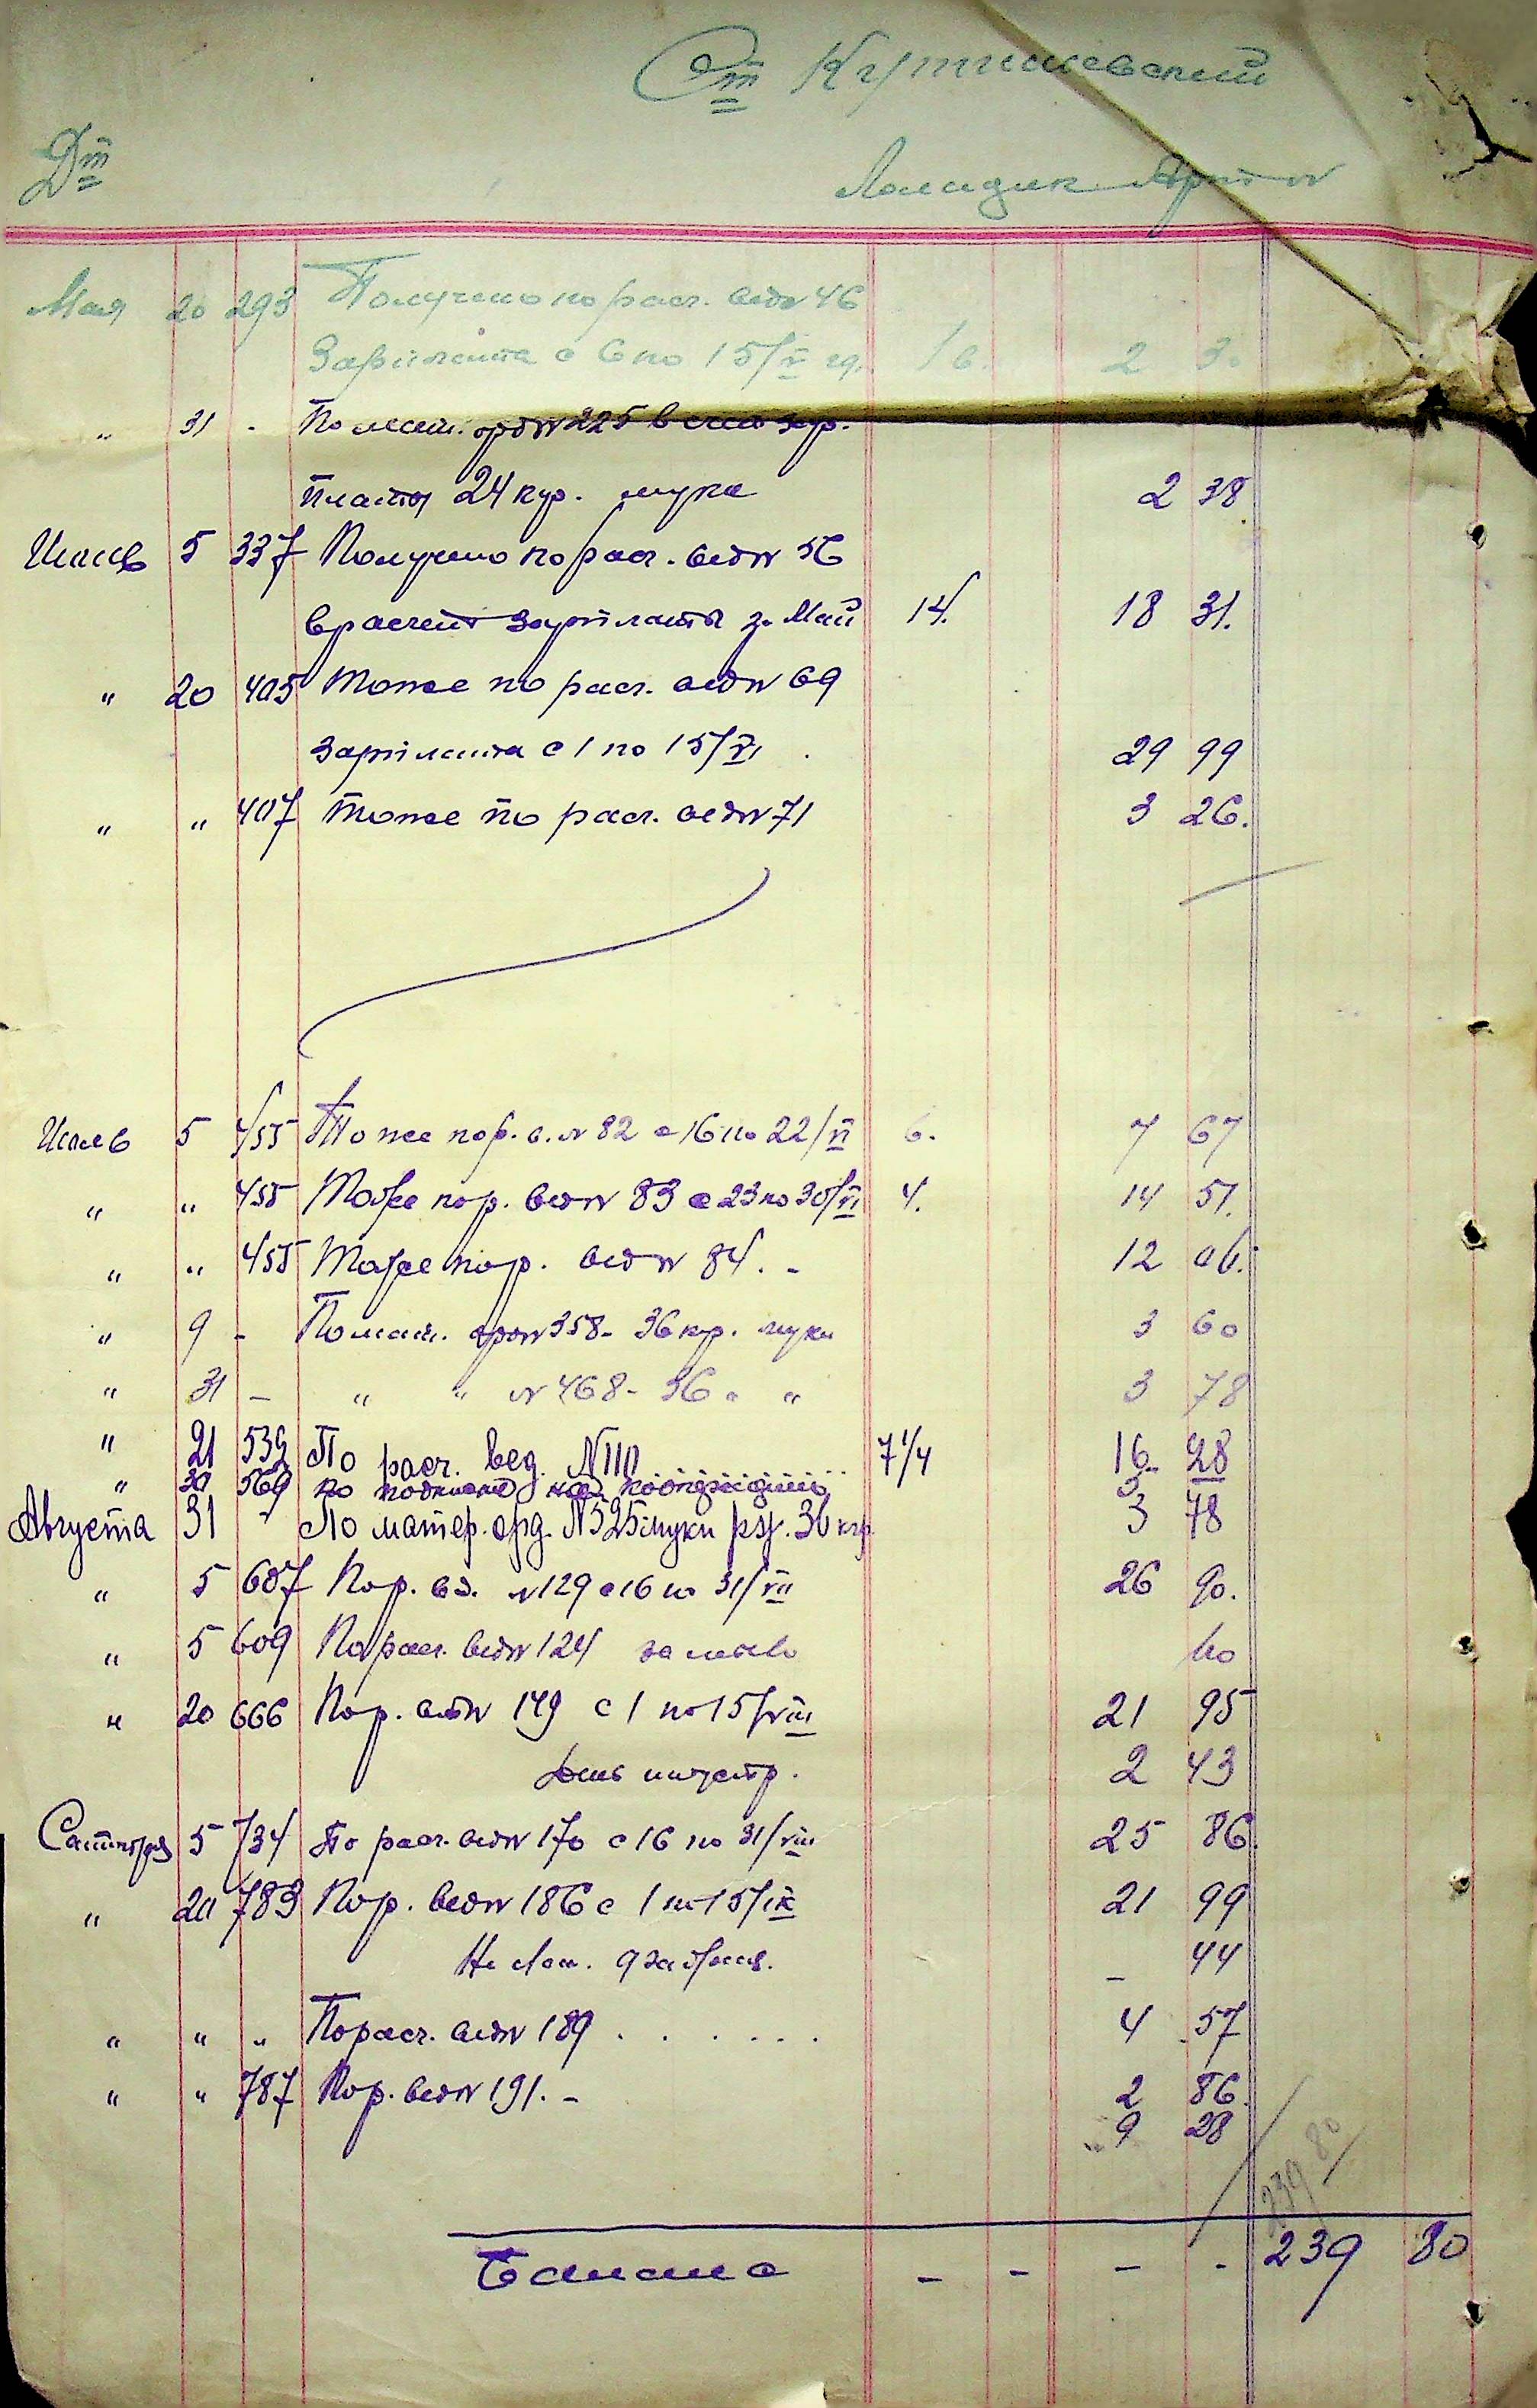 Ст Кутишевский
Дт
Мая 20 293 Получено по расч. вед № 46
Зарплата с 6 по 15/V 2 3
" 31 - По мат. орд № 225 в счет зар.
платы 24 кгр. муки 2 38
Июнь 5 337 Получено по расч. вед № 56
в расчет зарплаты за Май 14. 18 31.
" 20 405 Тоже по расч. вед № 69
зарплата с 1 по 15/VI 29 99
" " 407 Тоже по расч. вед № 71 3 26.
Июль 5 455 Тоже по р. в. № 82 с 16 по 22/VI 6. 7 67
" " 455 Тоже по р. вед № 83 с 23 по 30/VI 4. 14 51.
" " 455 Тоже по р. вед № 84. - 12 06.
" 9 - По мат. орд № 358 - 36 кгр. муки 3 60
" 31 - " " № 468 - 36 " " 3 78
" 21 539 По расч. вед. № 110 7 1/4 16 28
" 30 569 по подписке на 3
Августа 31 - По матер. орд. № 525 муки рж. 36 кгр 3 78
" 5 607 По р. вд. № 129 с 16 по 31/VII 26 90.
" 5 609 По расч. вед № 124 за 60
" 20 666 По р. вед № 149 с 1 по 15/VIII 21 95
День индустр. 2 43
Сентября 5 734 По расч. вед № 170 с 16 по 31/VIII 25 86.
" 20 783 По р. вед № 186 с 1 по 15/IX 21 99
- 44
" " " По расч. вед № 189 . . . . . . 4 57
" " 787 По р. вед № 191. - 2 86.
" 9 28
239 80
Баланс - - - - 239 80